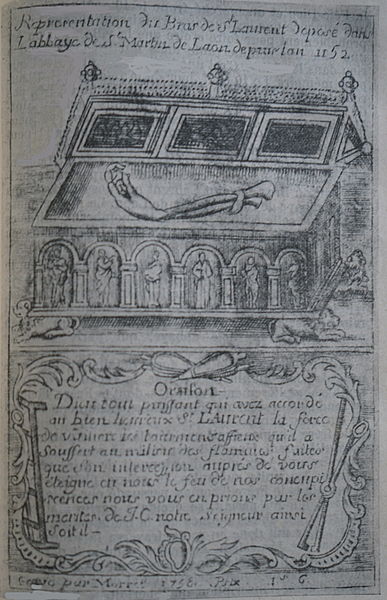 Representation du Bras de St Laurent deposé dans
L'abbaye de St Martin de Laon depuis lan 1152.
Oraison
Dieu tout puissant qui avez accordé
au bien heureux St LAurent la force
de vaincre les tourmens affreux qu'il a
souffert au milieu des flammes faites
que son intercession auprès de vous
éteigne en nous le feu de nos concupi
scences nous vous en prions par les
merites de J.C. notre Seigneur ainsi
soit il
Gravé par 1758. Prix 1s 6